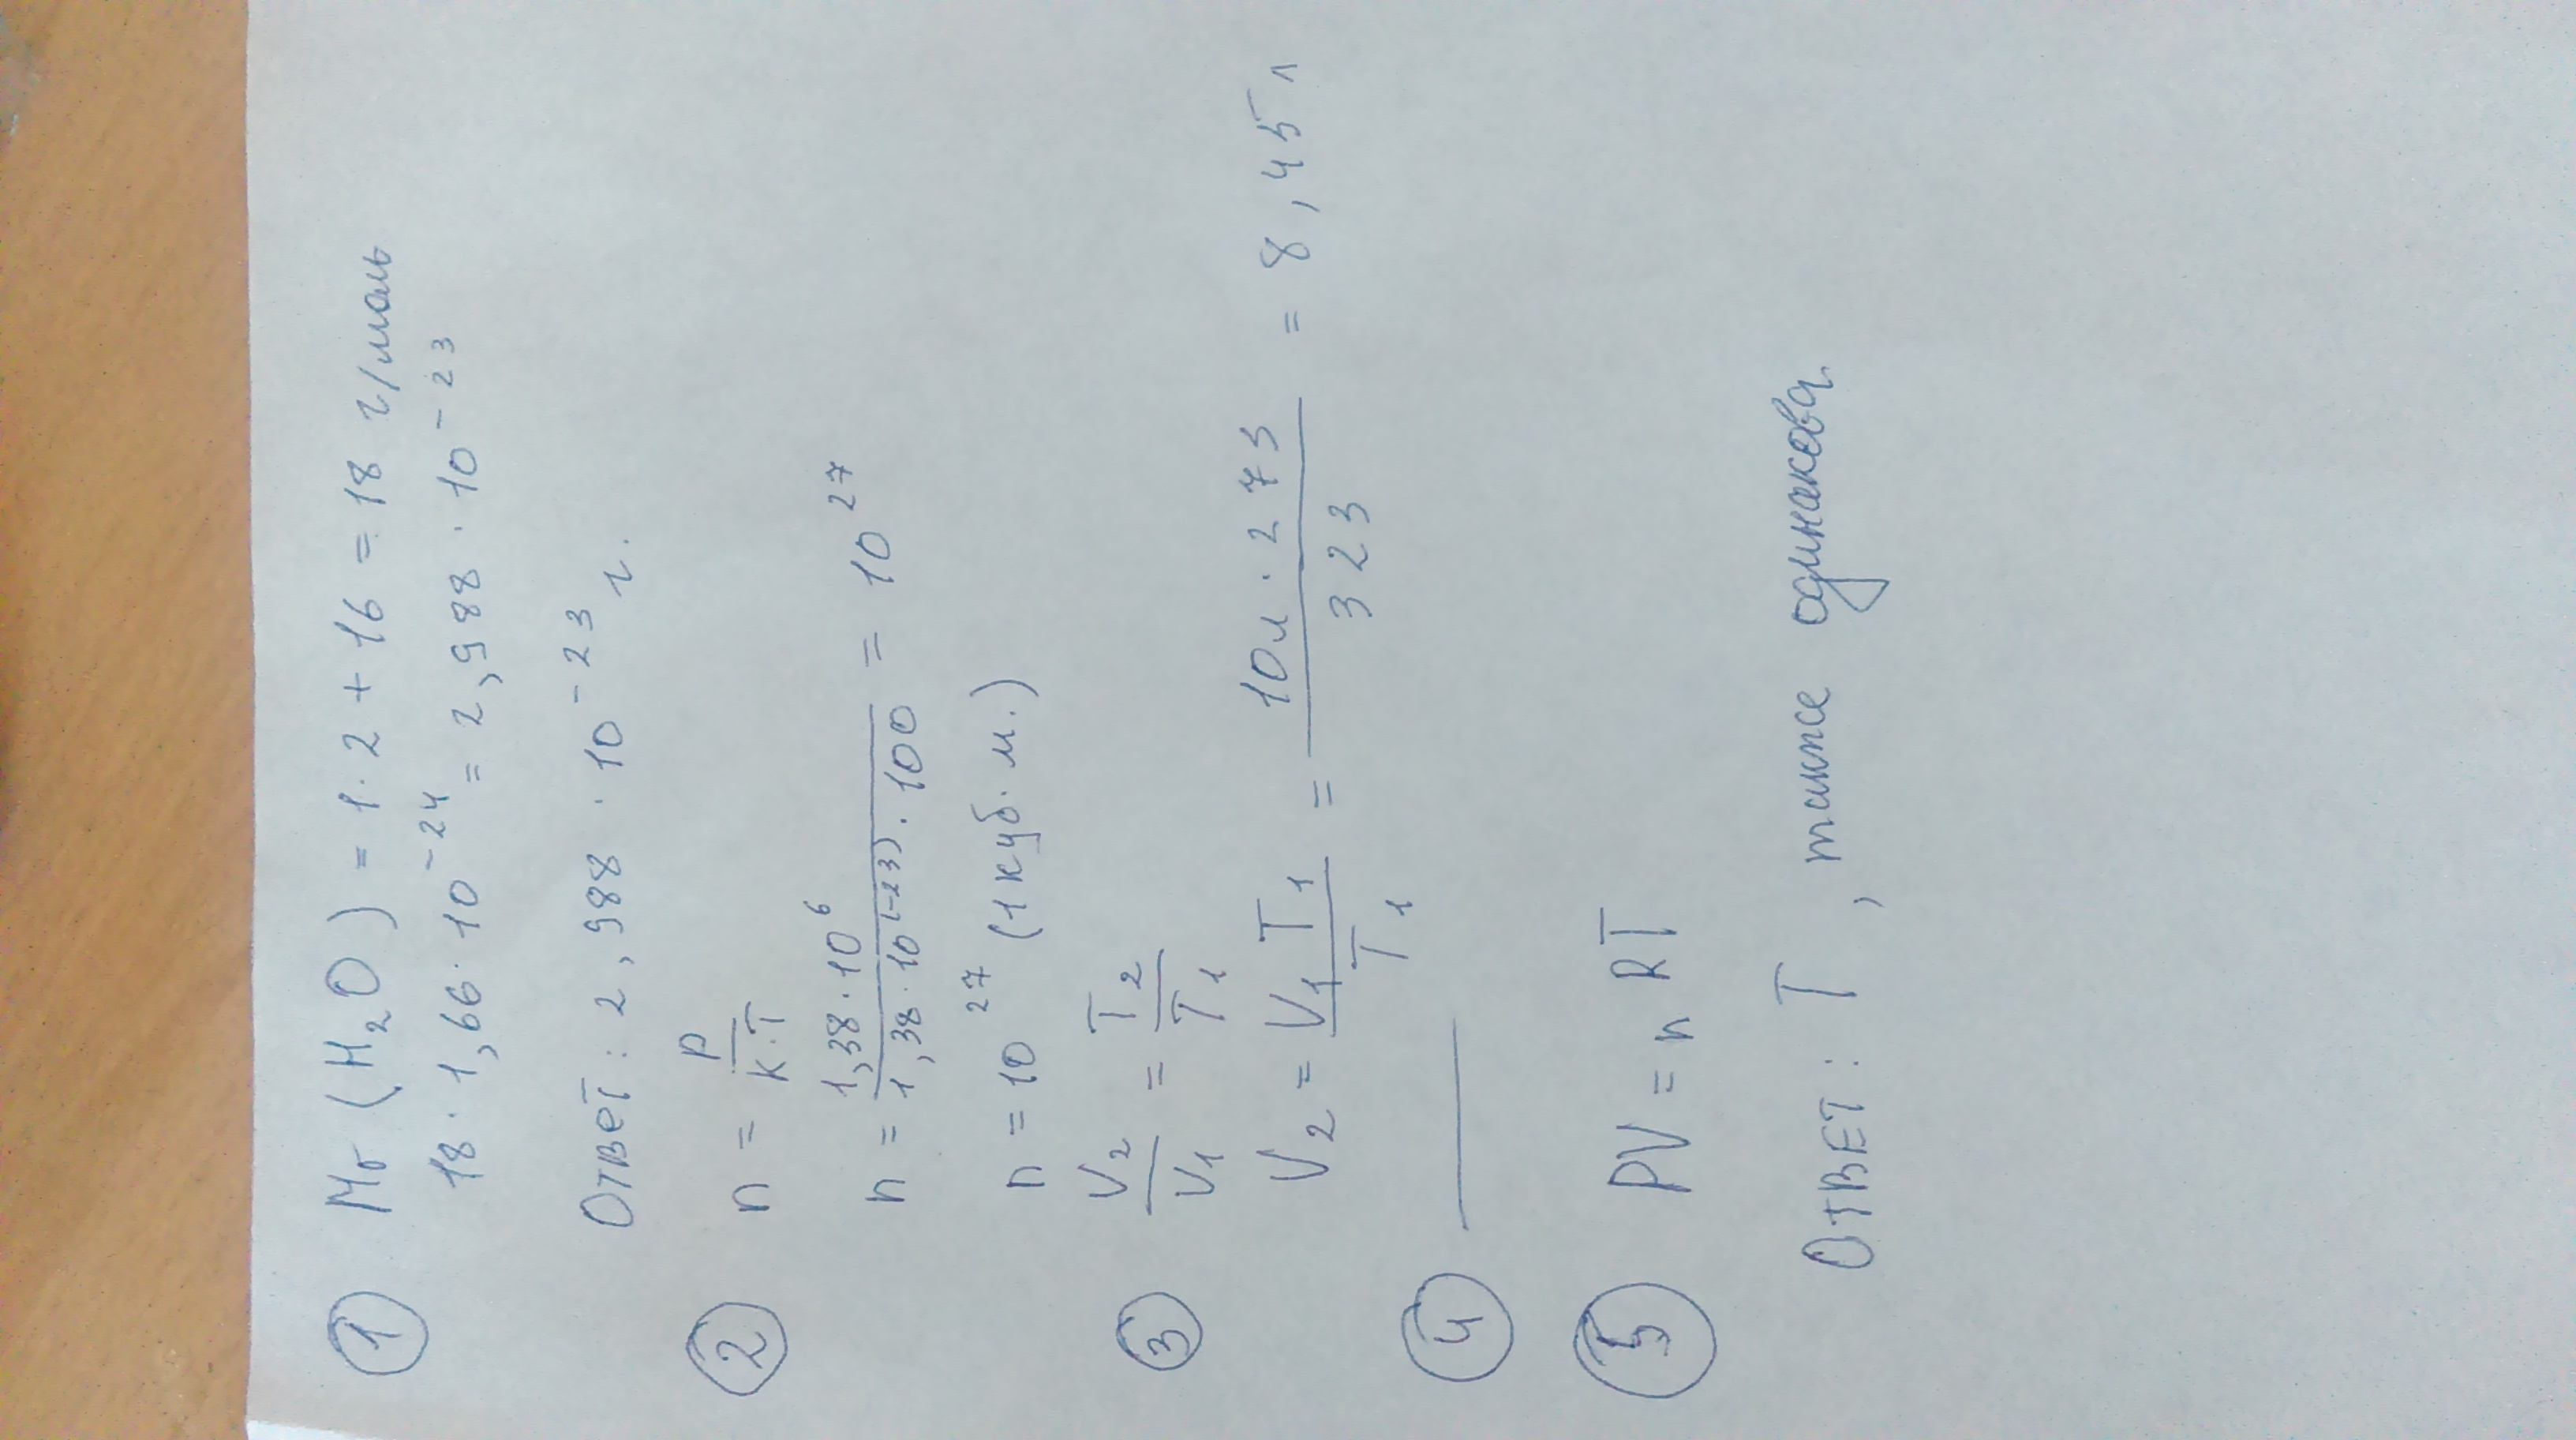 ① Mr (H₂O) = 1·2 + 16 = 18 г/моль
18 · 1,66 · 10⁻²⁴ = 2,988 · 10⁻²³
Ответ: 2,988 · 10⁻²³ г.
② n = p / k·T
n = 1,38·10⁶ / 1,38·10⁽⁻²³⁾·100 = 10²⁷
n = 10²⁷ (1 куб. м.)
③ V₂ / V₁ = T₂ / T₁
V₂ = V₁T₁ / T₁ = 10л · 273 / 323 = 8,45 л
④ —
⑤ PV = n RT
ОТВЕТ: T, также одинакова.